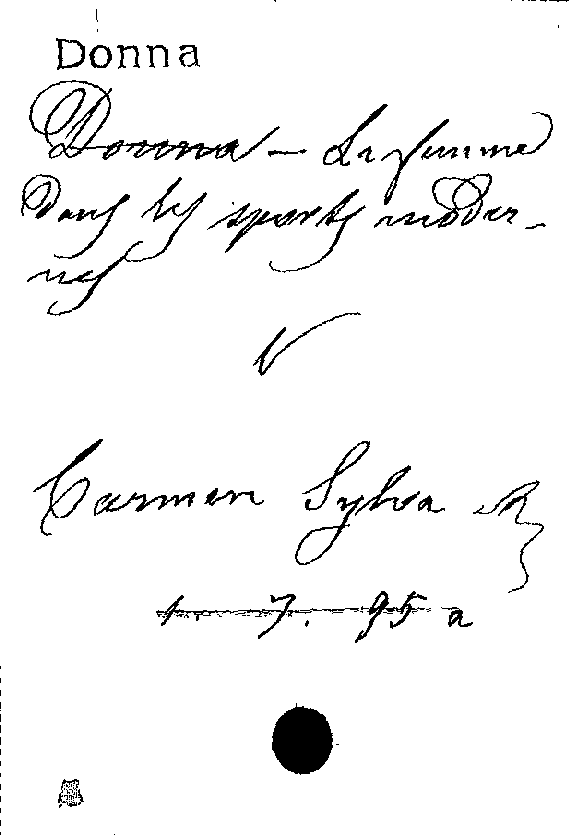 Donna
Donna – La femme
dans les sports moder-
nes
V
Carmen Sylva
1. 7. 95 a